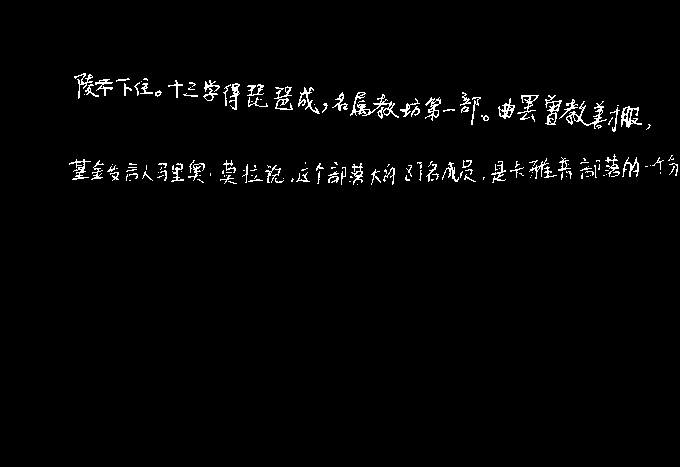 陵下住。十三学得琵琶成，名属教坊第一部。曲罢曾教善才服，
基金发言人马里奥·莫拉说，这个部落大约 名成员，是卡雅布部落的一个